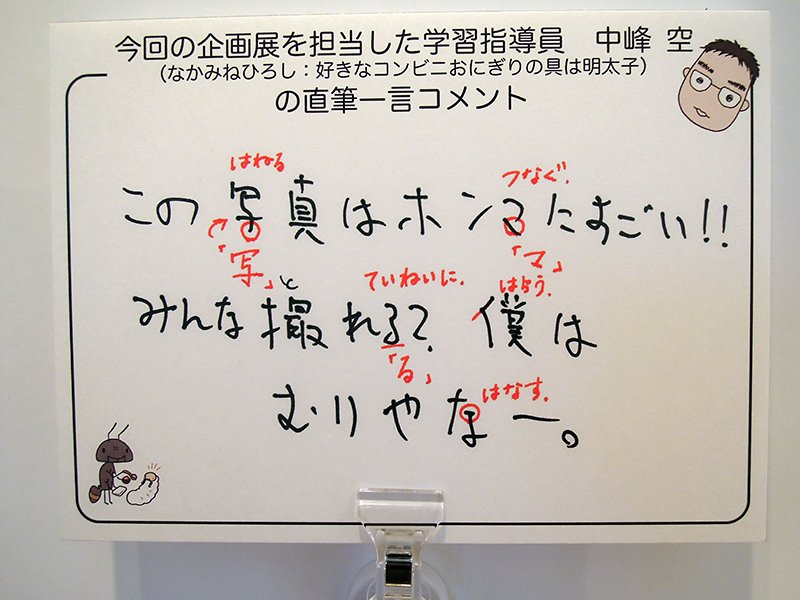 今回の企画展を担当した学習指導員　中峰 空
（なかみねひろし：好きなコンビニおにぎりの具は明太子）
の直筆一言コメント
はねる
つなぐ.
この写真はホンマにすごい!!
「写」
「マ」
と
ていねいに.
はらう.
みんな撮れる? 僕は
「る」
はなす.
むりやなー。